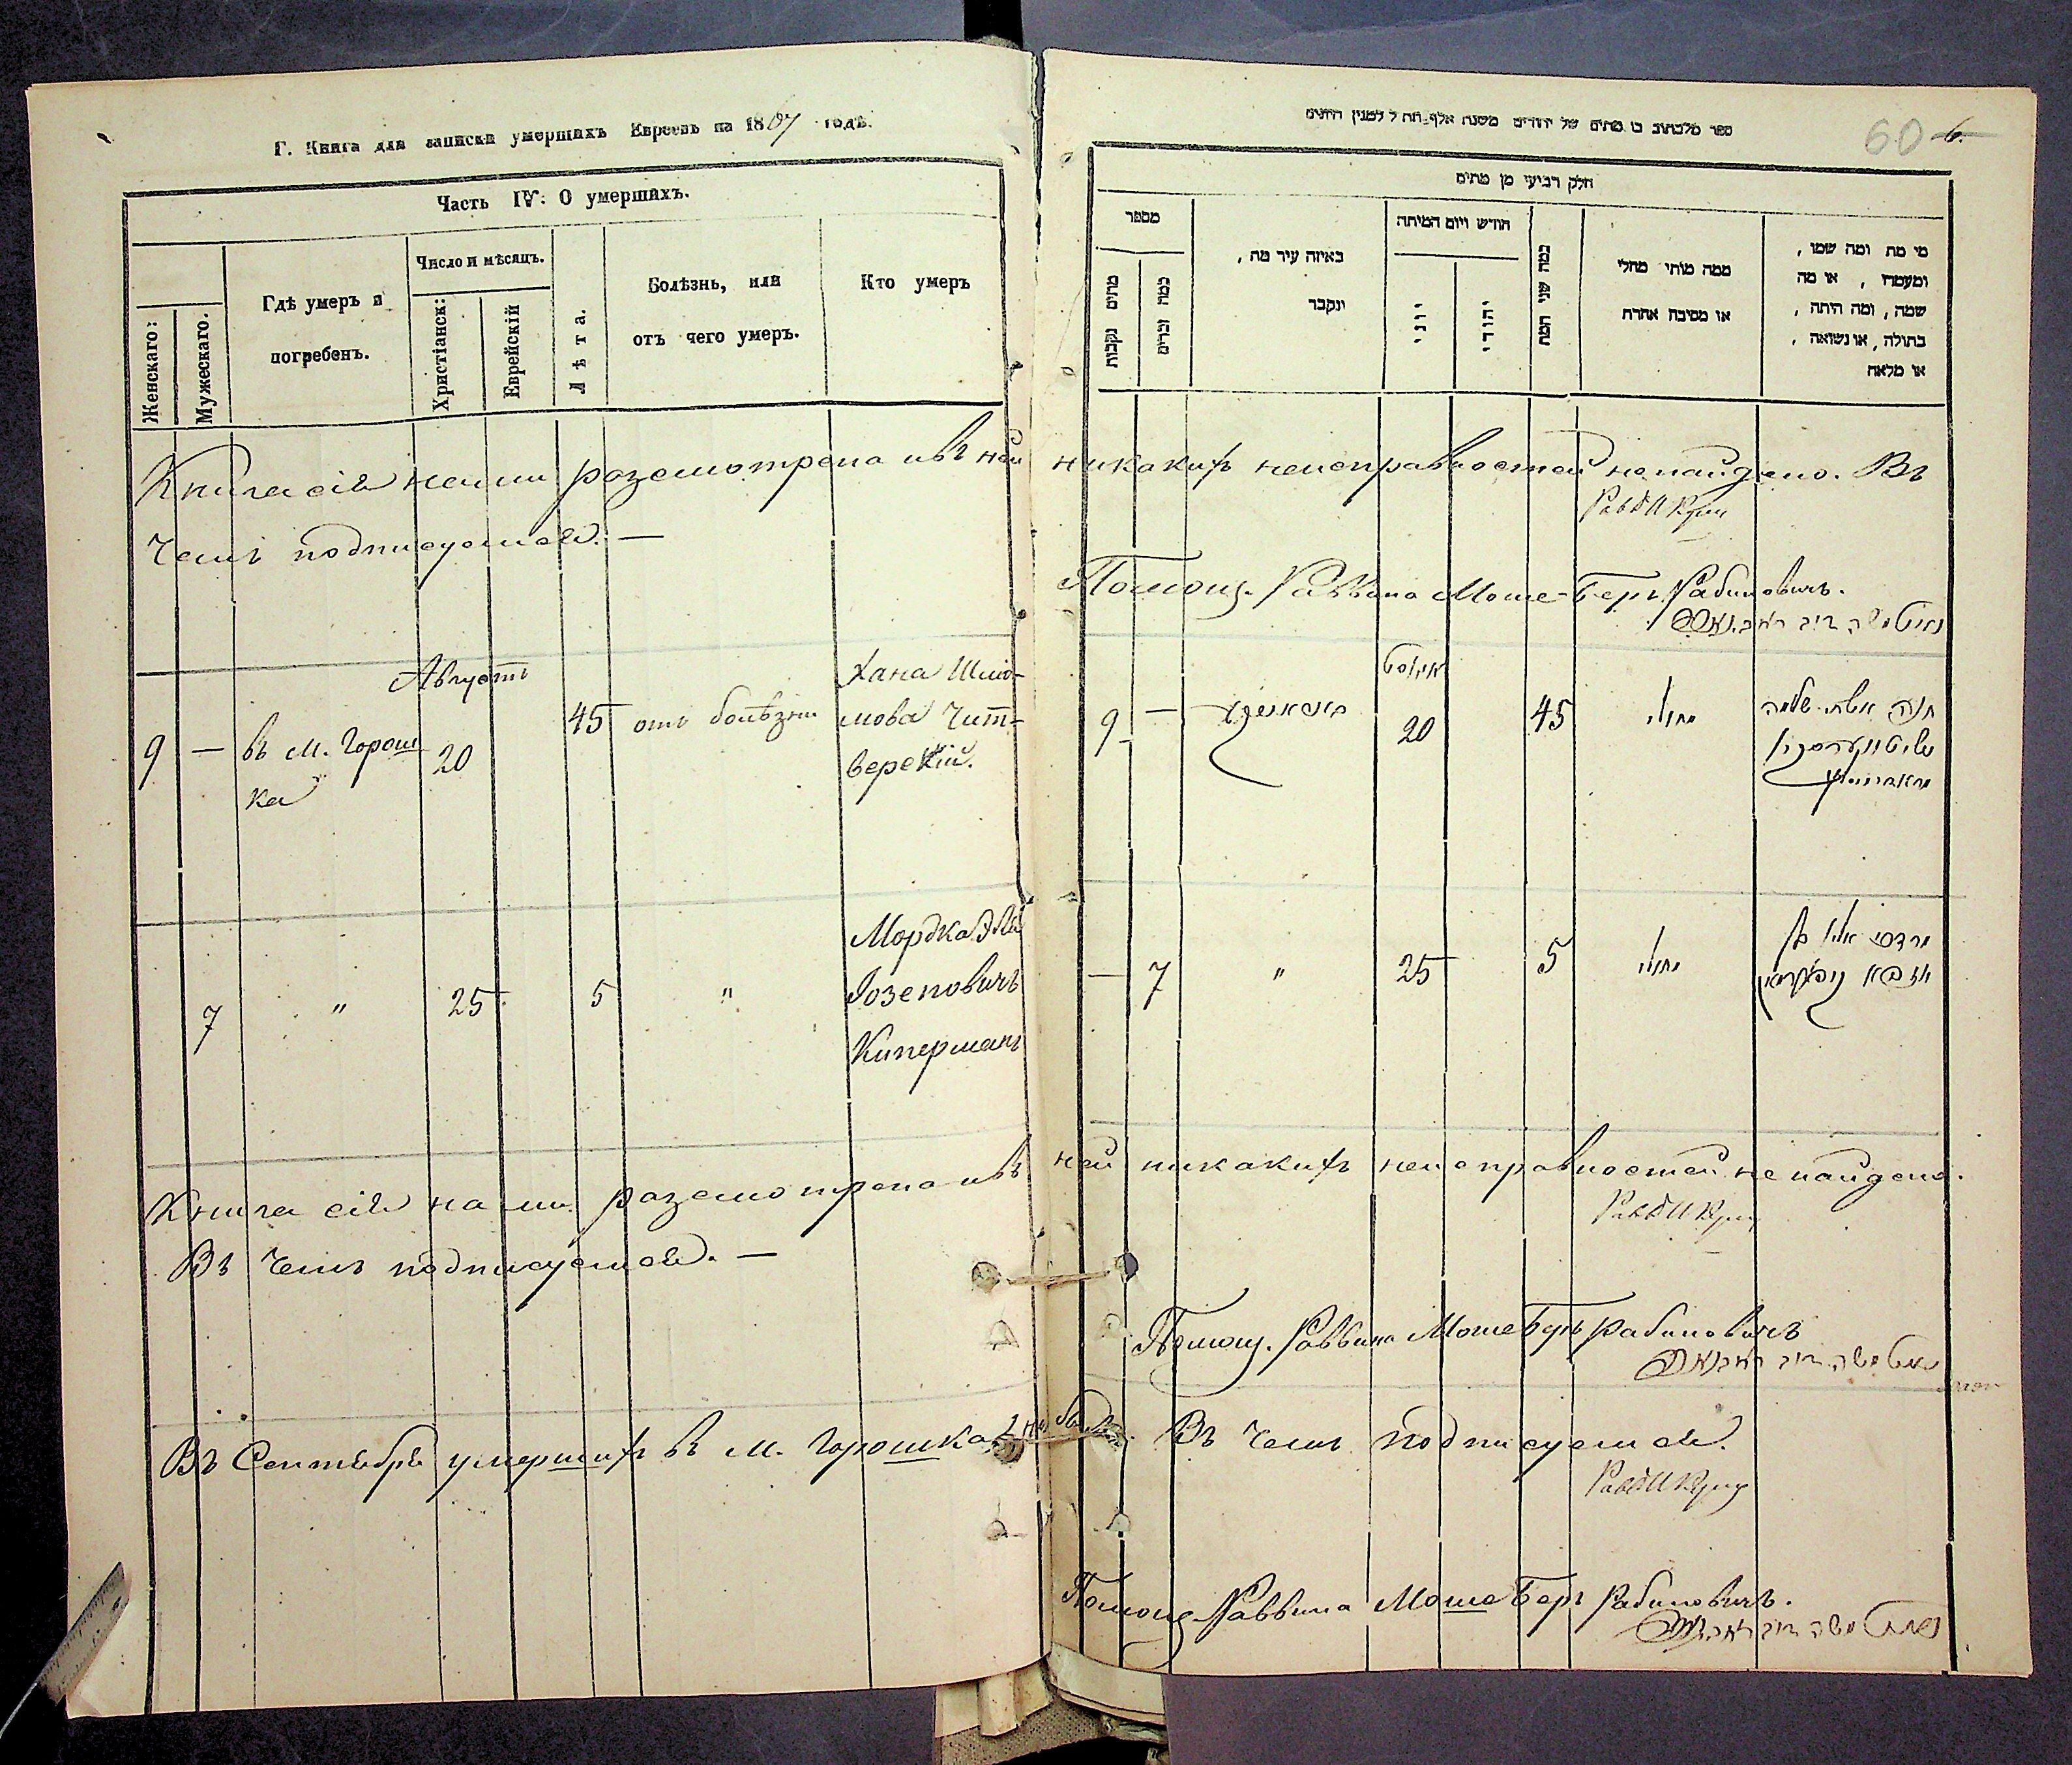 Г. Книга для записки умершихъ Евреевъ на 1867 годъ.
Часть IV: О умершихъ.
Женскаго:
Мужескаго.
Гдѣ умеръ и
погребенъ.
Число и мѣсяцъ.
Христіанск:
Еврейскій
Лѣта.
Болѣзнь, или
отъ чего умеръ.
Кто умеръ
Книга сія нами разсмотрена и въ ней
Чемъ подписуемся. —
Августъ
9 — въ м. Горош
ка
20
45 отъ болѣзни
Хана Шлио-
мова Чит-
верский.
7 " 25 5 "
Мордка Эли
Іозеповичъ
Киперманъ
Книга сія нами разсмотрена и въ
Въ Чемъ подписуемся. —
Въ Сентябрѣ умершихъ въ м. Горошкахъ не было
ספר מלכתוב בו מתים של יהודים משנת אלף תת ל למנין היונים
60 6.
חלק רביעי מן מתים
מספר
מתים נקבות
כמה זכרים
באיזה עיר מת,
ונקבר
חודש ויום המיתה
יוני
יהודי
כמה שני המת
ממה מותי מחלי
או מסיבה אחרת
מי מת ומה שמו,
ומעמדו, או מה
שמה, ומה היתה,
בתולה, או נשואה,
או מלאה
никакихъ неисправностей не найдено. Въ
Помощ. Раввина Моше-Беръ Рабиновичъ.
אויגוסט
9 — 20 45 מחולי
חנה אשת שלמה
— 7 " 25 5 מחולי
מרדכי אלי בן
ней никакихъ неисправностей не найдено.
Помощ. Раввина Моше Беръ Рабиновичъ
Въ Чемъ подписуемся.
Помощ. Раввина Моше Беръ Рабиновичъ.